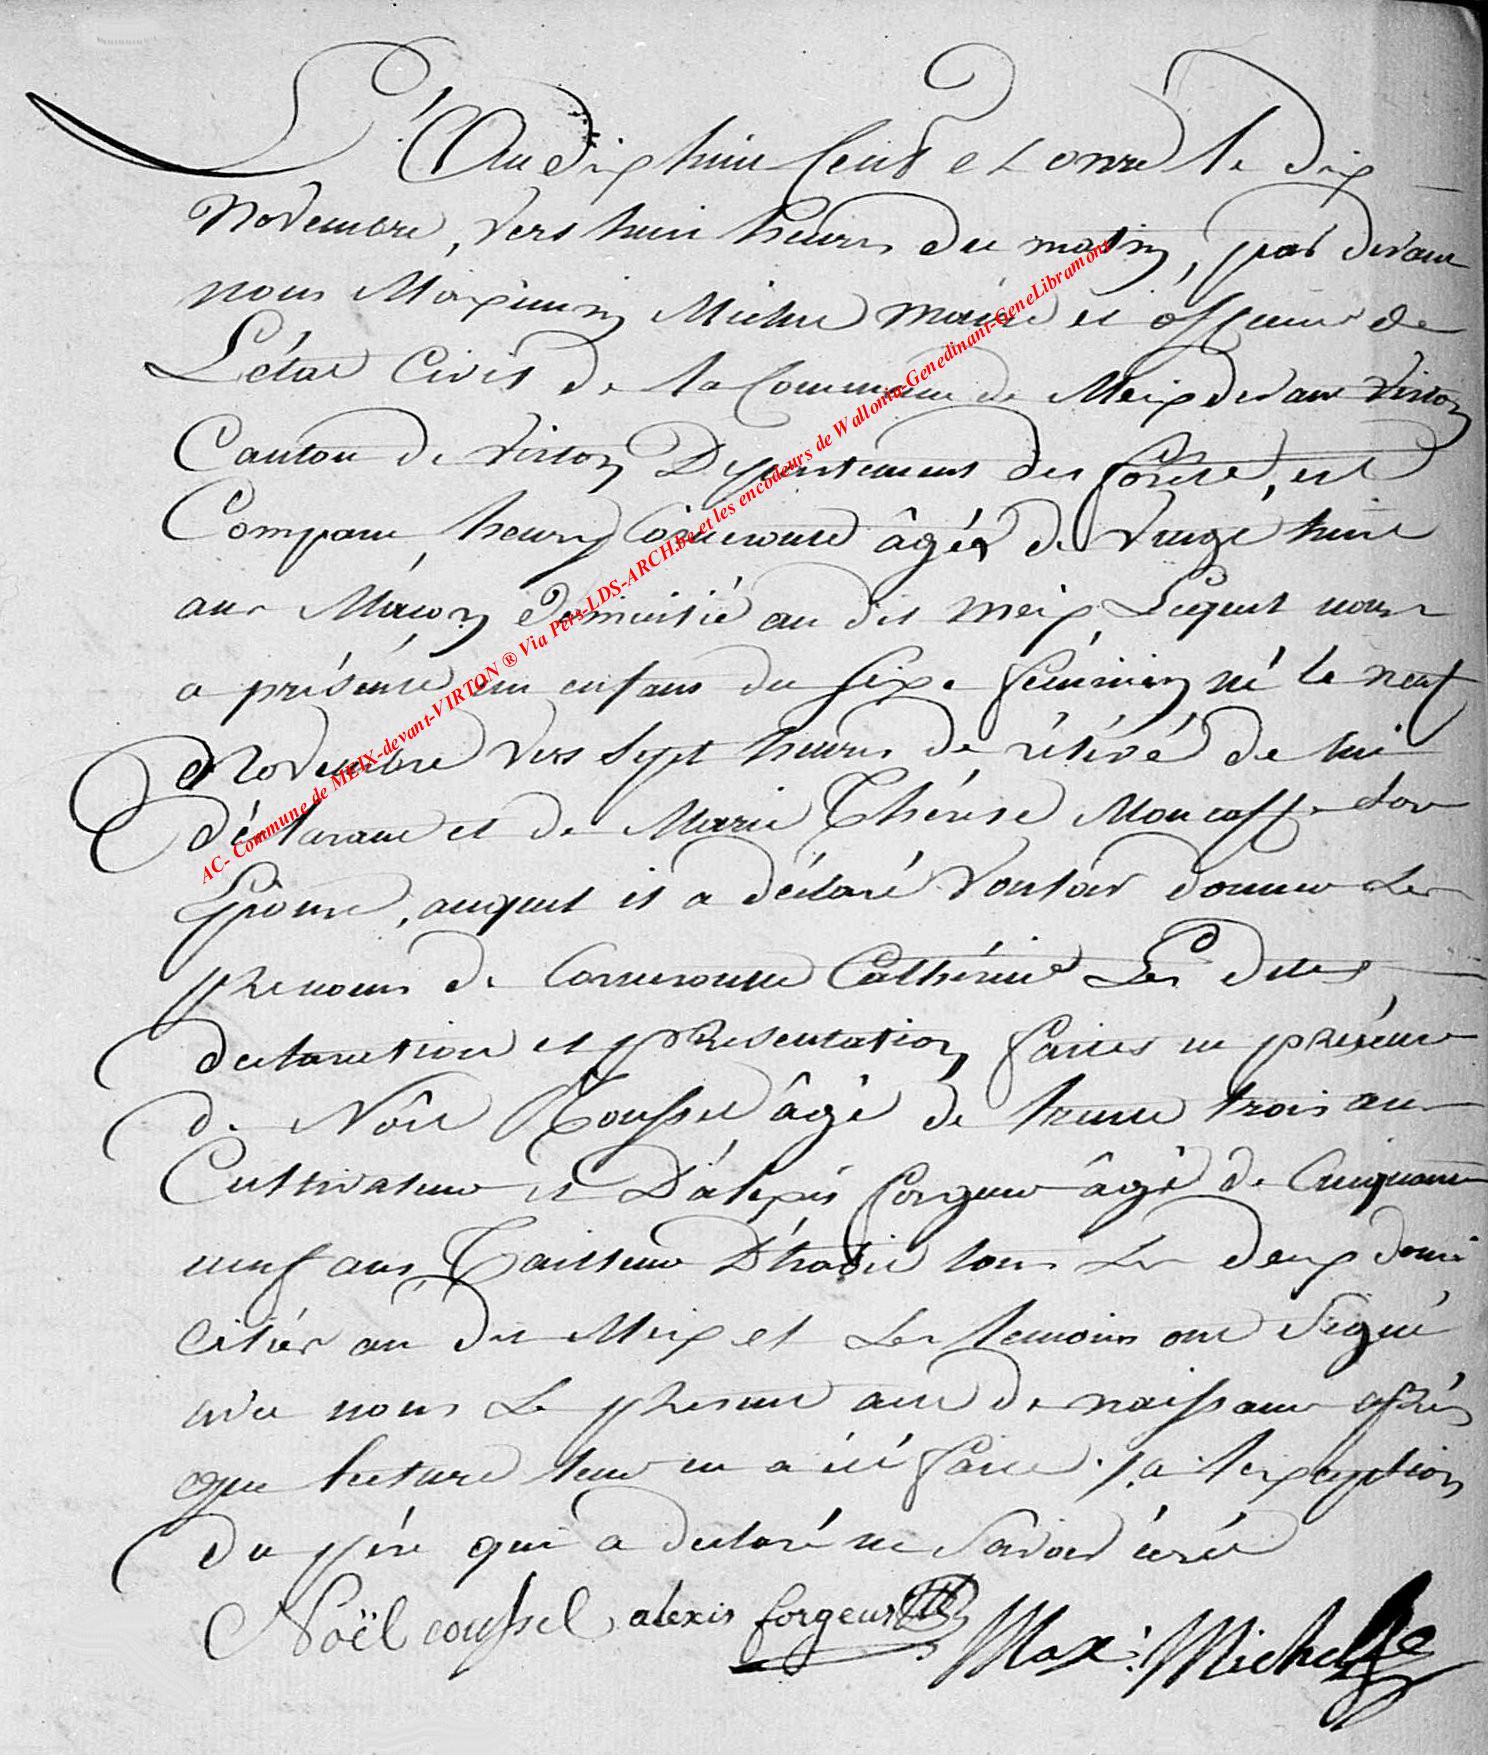 L'An dix huit Cent et onze le dix
Novembre, vers huit heures du matin, par devant
nous Maximin Michel maire et officier de
L'état Civil de la Commune de Meix devant Virton
Canton de Virton Departement des forets, est
Comparu, henry Cornerotte âgé de Vingt huit
ans Macon domicilié au dit Meix Lequel nous
a présenté un enfant du sexe féminin né le neuf
Novembre vers sept heures de rélévé de lui
déclarant et de Marie Thérése Moncousse son
Epouse, auquel il a déclaré vouloir donner les
prenoms de Cornerotte Cathérine Les dites
declaration et presentation faites en présence
de Nöel Cousset âgé de trente trois ans
Cultivateur et D'aléxis forgeur âgé de Cinquante
neuf ans, Tailleur D'habit tous les deux domi
ciliés au dit Meix et les temoins ont Signé
avec nous le present acte de naissance aprés
que lecture leur en a été faite. a l'exception
du pére qui a declaré ne savoir écrire
Noël cousset alexis forgeur Max: Michel
AC- Commune de MEIX-devant-VIRTON ® Via Pers-LDS-ARCH.be et les encodeurs de Wallonia-Genedinant-GeneLibramont